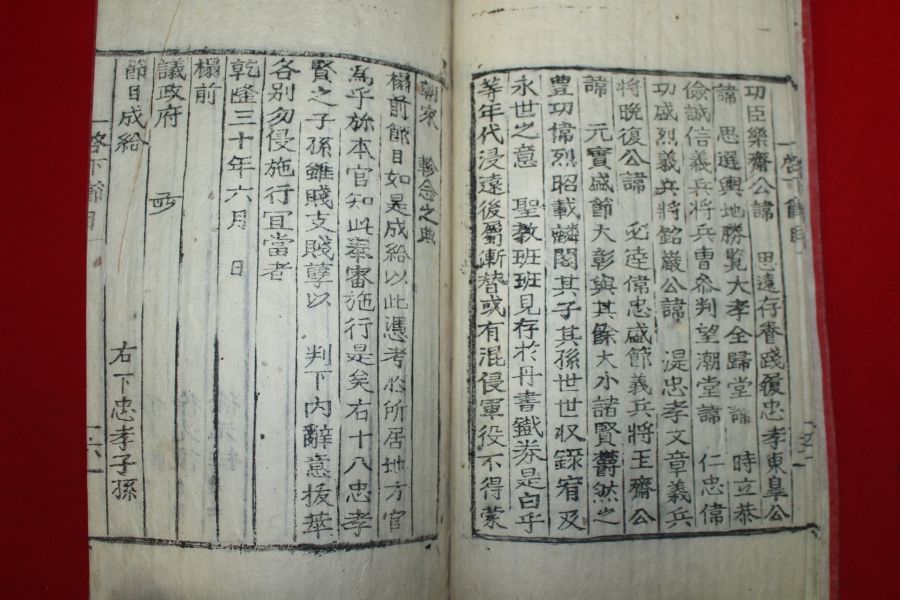 功臣樂齋公諱 思遠存養踐履忠孝東臯公
諱 思選輿地勝覧大孝全歸堂諱 時立恭
儉誠信義兵將兵曹叅判望潮堂諱 仁忠偉
功盛烈義兵將銘巖公諱 湜忠孝文章義兵
將晩復公諱 必達偉忠盛節義兵將玉齋公
諱 元實盛節大彰與其餘大小諸賢欝然之
豊功偉烈昭載麟閣其子其孫世世収錄宥及
永世之意 聖教班班見存於丹書鐵券是白乎
等年代浸遠後裔漸替或有混侵軍役不得蒙
朝家 軫念之典
榻前節目如是成給以此憑考於所居地方官
爲乎旀本官知此奉審施行是矣右十八忠孝
賢之子孫雖賤支賤孽以 判下內辭意拔華
各別勿侵施行宜當者
乾隆三十年六月 日
榻前
議政府
節目成給 右下忠孝子孫
啓下節目 六